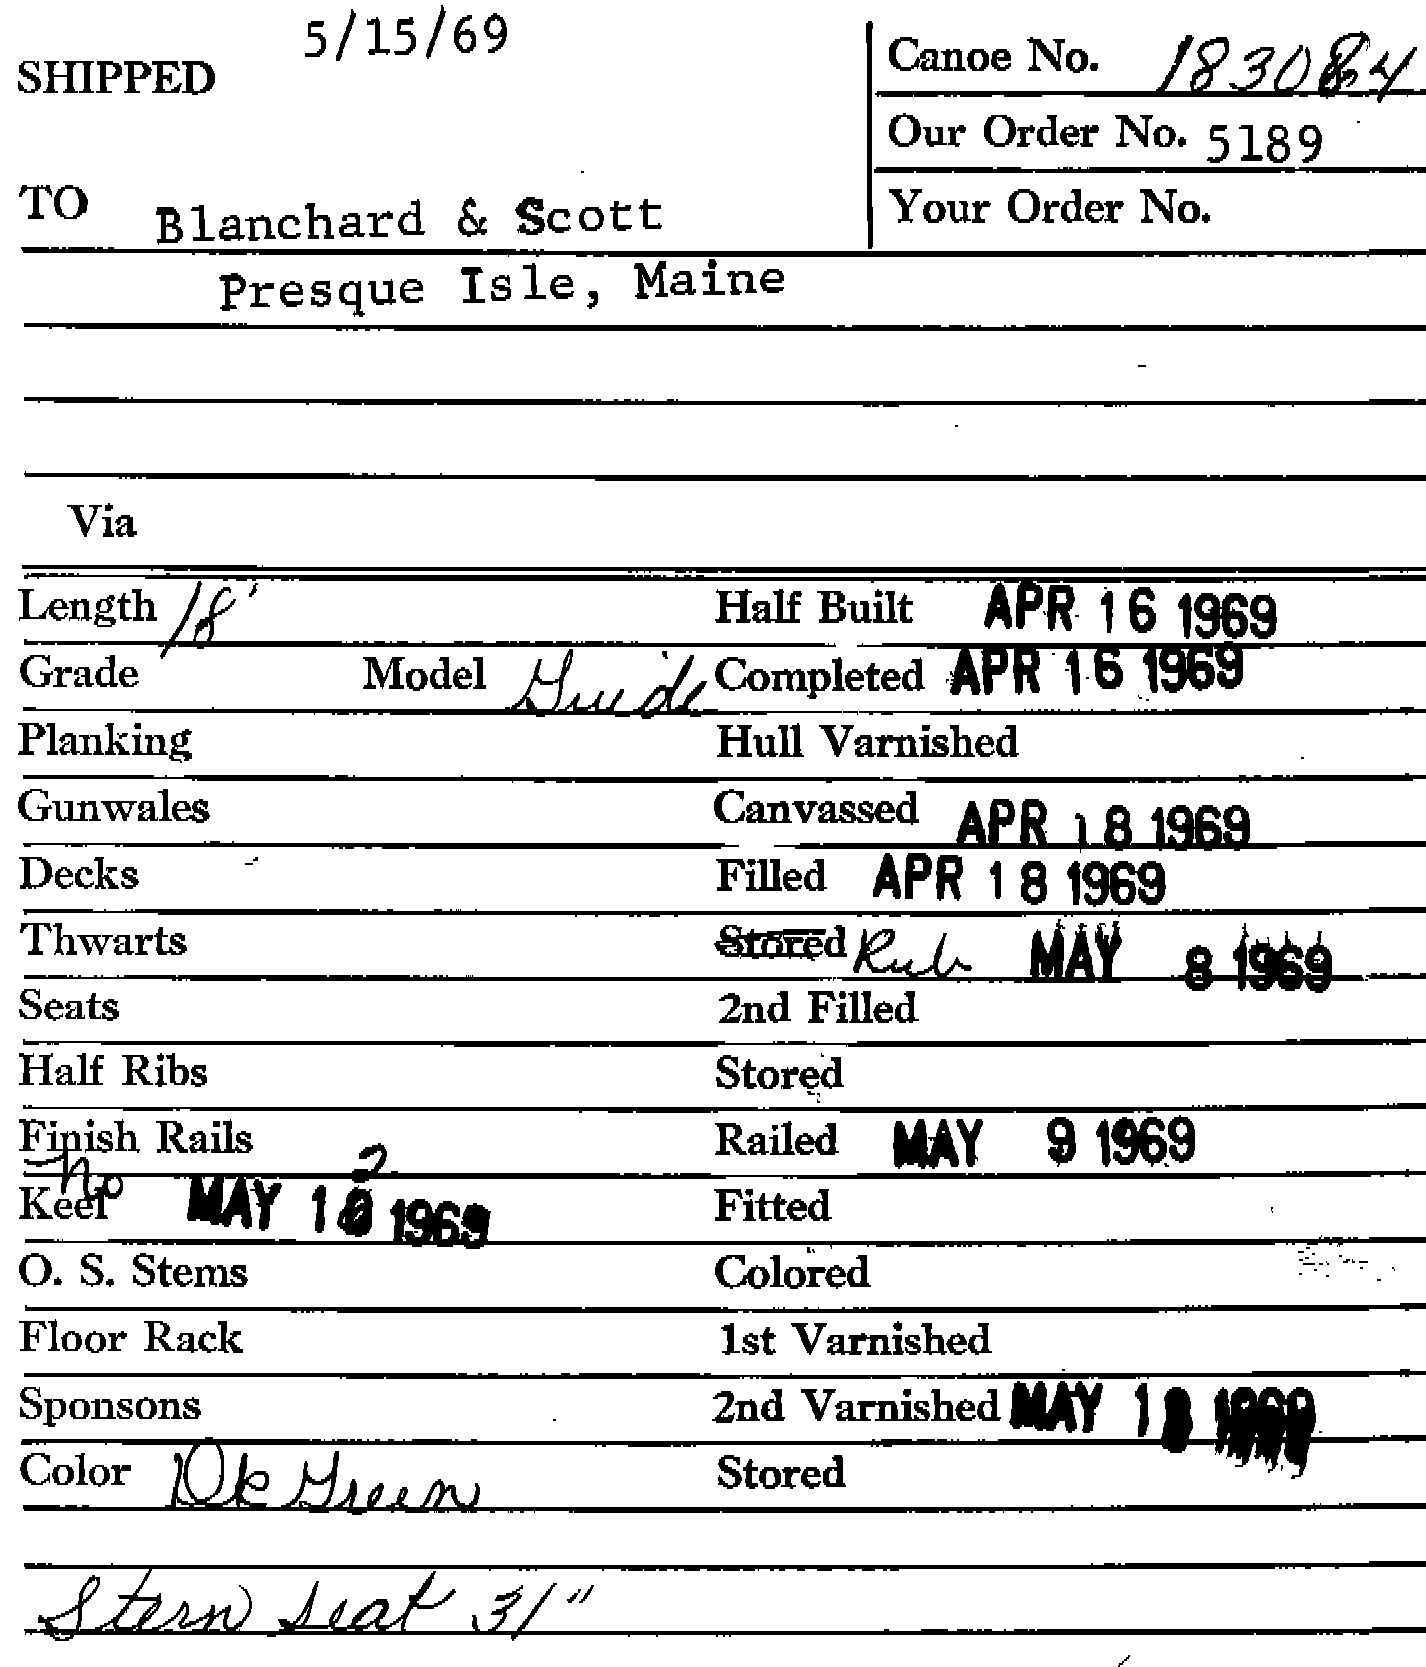 5/15/69
SHIPPED
Canoe No. 183084
Our Order No. 5189
TO Blanchard & Scott
Your Order No.
Presque Isle, Maine
Via
Length 18' Half Built APR 16 1969
Grade Model Guide Completed APR 16 1969
Planking Hull Varnished
Gunwales Canvassed APR 18 1969
Decks Filled APR 18 1969
Thwarts Stored Rub MAY 8 1969
Seats 2nd Filled
Half Ribs Stored
Finish Rails Railed MAY 9 1969
No 2
Keel MAY 1 1969 Fitted
O. S. Stems Colored
Floor Rack 1st Varnished
Sponsons 2nd Varnished MAY 13 1969
Color Dk Green Stored
Stern seat 31"